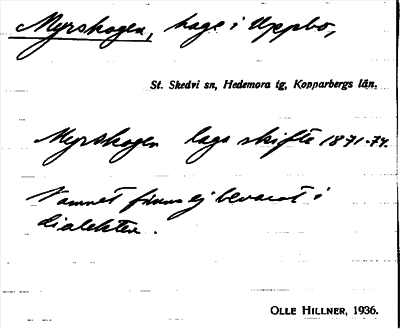 Myrskogen, hage i Uppbo,
St. Skedvi sn, Hedemora tg, Kopparbergs län.
Myrskogen laga skifte 1871-74.
Namnet finns ej bevarat i
dialekten.
OLLE HILLNER, 1936.